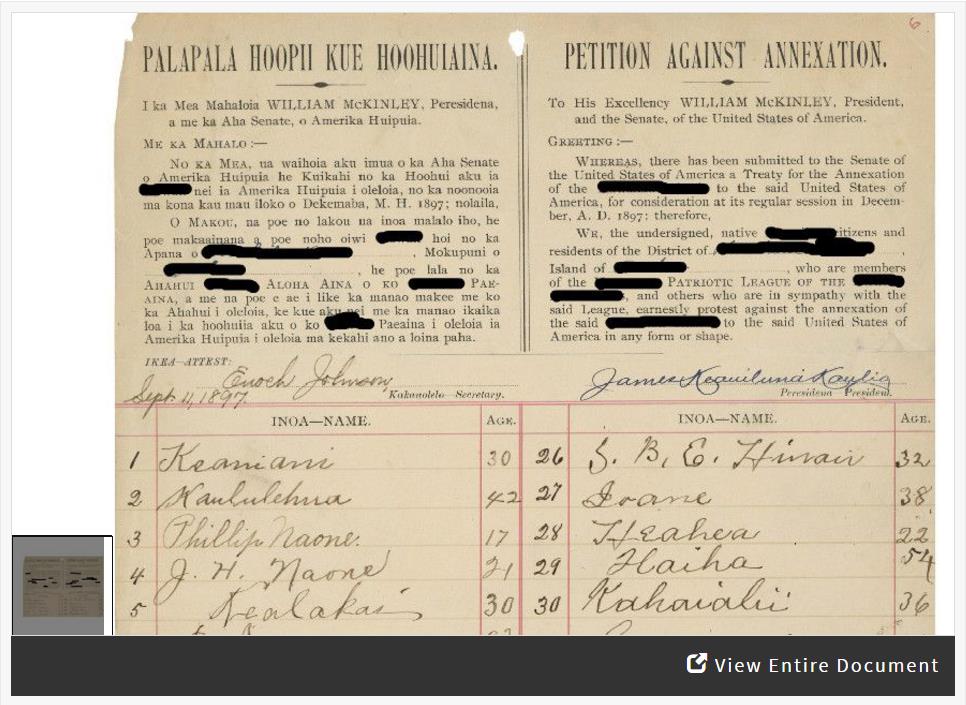 6
PALAPALA HOOPII KUE HOOHUIAINA.
I ka Mea Mahaloia WILLIAM McKINLEY, Peresidena,
a me ka Aha Senate, o Amerika Huipuia.
ME KA MAHALO :—
NO KA MEA, ua waihoia aku imua o ka Aha Senate
o Amerika Huipuia he Kuikahi no ka Hoohui aku ia
nei ia Amerika Huipuia i oleloia, no ka noonooia
ma kona kau mau iloko o Dekemaba, M. H. 1897; nolaila,
O MAKOU, na poe no lakou na inoa malalo iho, he
poe makaainana a poe noho oiwi hoi no ka
Apana o , Mokupuni o
, he poe lala no ka
AHAHUI ALOHA AINA O KO PAE-
AINA, a me na poe e ae i like ka manao makee me ko
ka Ahahui i oleloia, ke kue aku nei me ka manao ikaika
loa i ka hoohuiia aku o ko Paeaina i oleloia ia
Amerika Huipuia i oleloia ma kekahi ano a loina paha.
IKEA—ATTEST:
Enoch Johnson
Sept 11, 1897. Kakauolelo—Secretary.
PETITION AGAINST ANNEXATION.
To His Excellency WILLIAM McKINLEY, President,
and the Senate, of the United States of America.
GREETING :—
WHEREAS, there has been submitted to the Senate of
the United States of America a Treaty for the Annexation
of the to the said United States of
America, for consideration at its regular session in Decem-
ber, A. D. 1897; therefore,
WE, the undersigned, native citizens and
residents of the District of ,
Island of , who are members
of the PATRIOTIC LEAGUE OF THE
, and others who are in sympathy with the
said League, earnestly protest against the annexation of
the said to the said United States of
America in any form or shape.
James Keauiluna Kaulia
Peresidena President.
INOA—NAME. AGE. INOA—NAME. AGE.
1 Keaniani 30 26 S. B. E. 32
2 Kaululehua 42 27 Ioane 38
3 Phillip Naone. 17 28 Heahea 22
4 J. H. Naone 21 29 Haiha 54
5 Kealakai 30 30 Kahaialii 36
View Entire Document